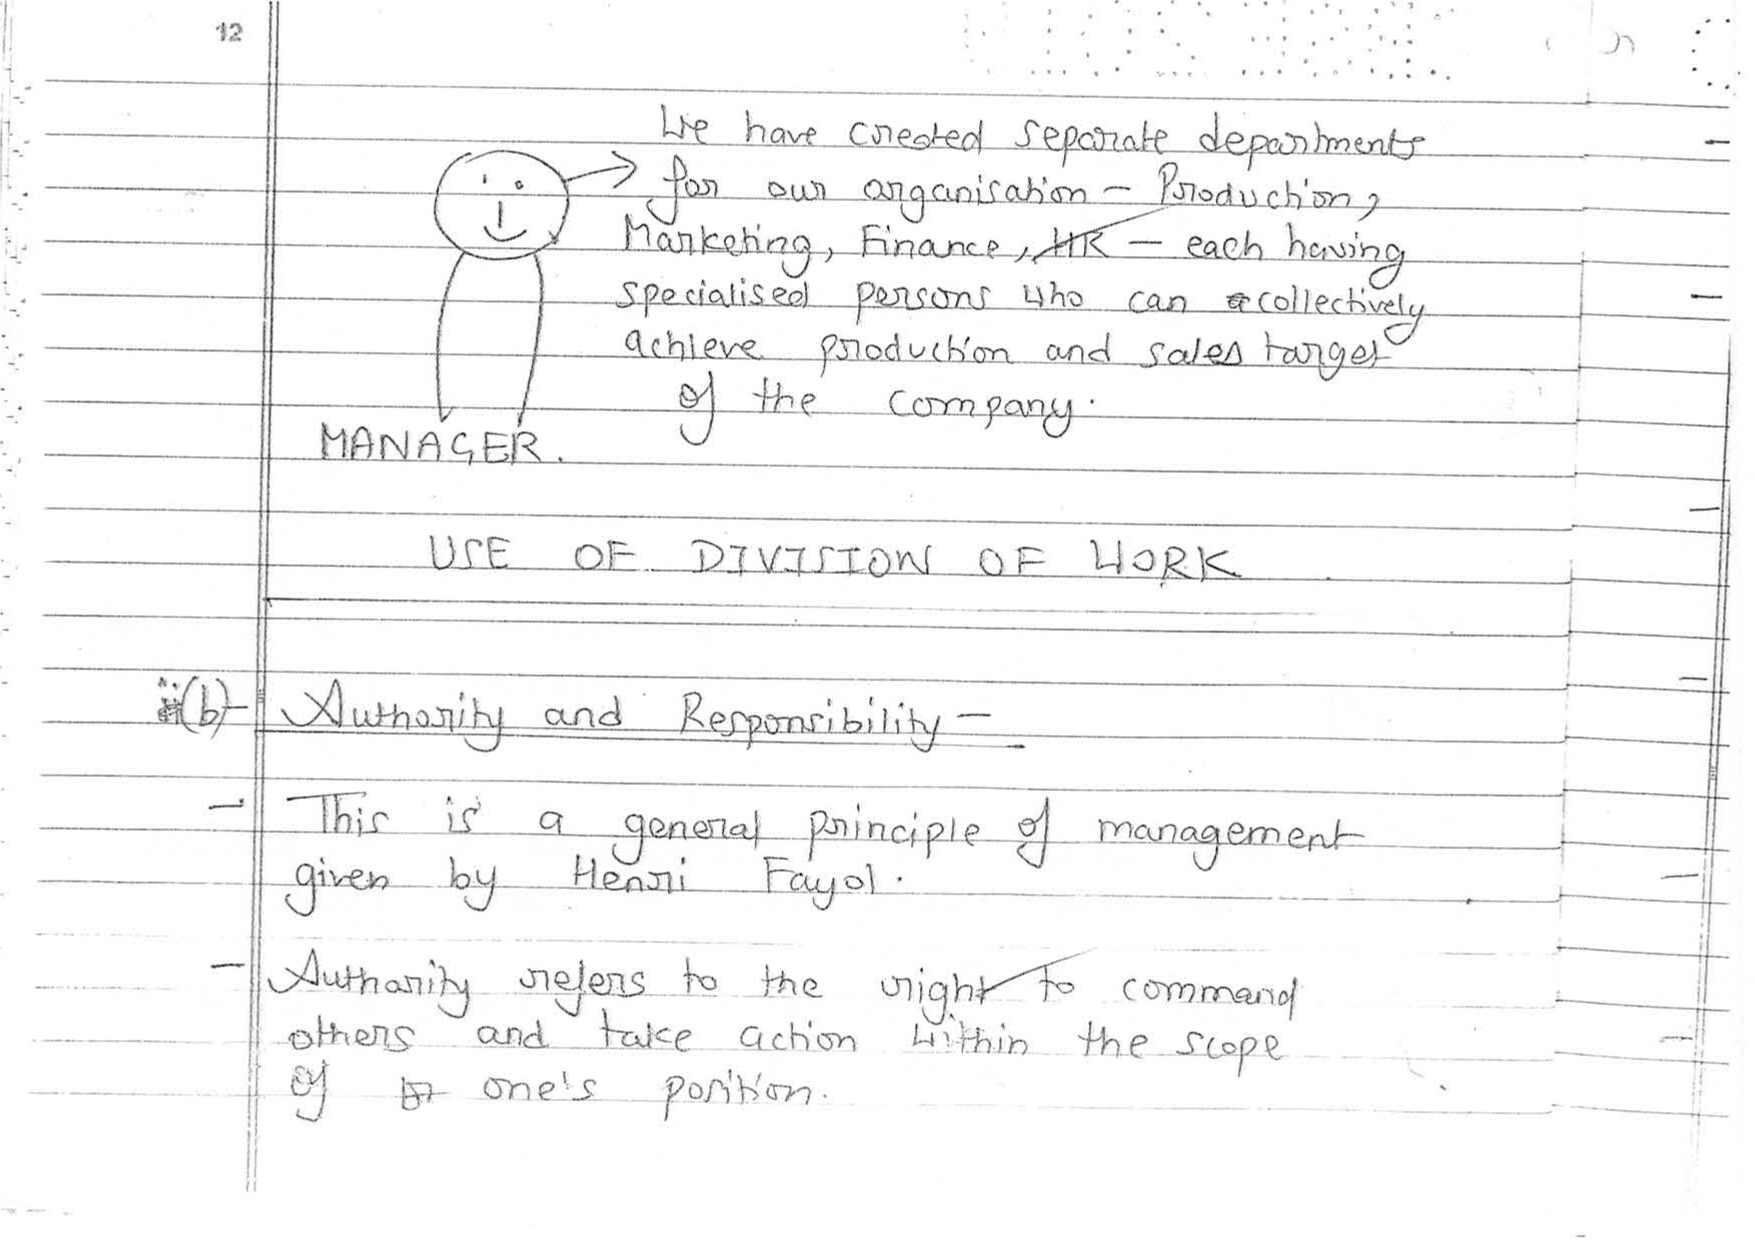 12
We have created separate departments
for our organisation - Production,
Marketing, Finance, HR - each having
specialised persons who can collectively
achieve production and sales target
of the company.
MANAGER.
USE OF DIVISION OF WORK
(b)- Authority and Responsibility -
- This is a general principle of management
given by Henri Fayol.
- Authority refers to the right to command
others and take action within the scope
of one's position.